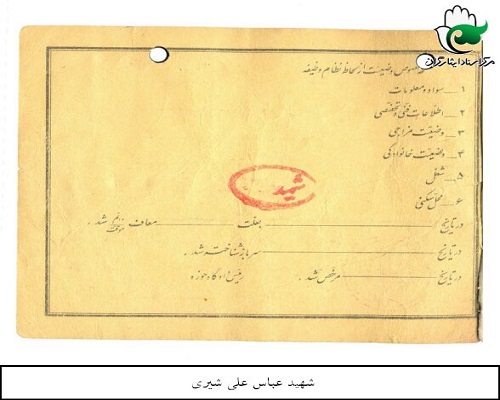 مرکز اسناد ایثارگران
مخصوص وضعیت از لحاظ نظام وظیفه
۱ــ سواد و معلومات
۲ــ اطلاعات فنی و تخصصی
۳ــ وضعیت مزاجی
۴ــ وضعیت خانوادگی
۵ــ شغل
شهید
۶ــ محل سکنی
در تاریخ ــــ بعلت ــــ معاف دائم موقت شد .
در تاریخ ــــ سرباز شناخته شد .
در تاریخ ــــ مرخص شد . رئیس ادگاه حوزه
شهید عباس علی شیری